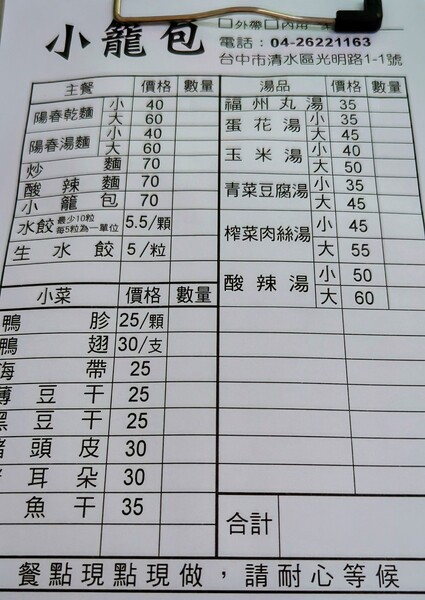 小龍包
□外帶□內用
電話：04-26221163
台中市清水區光明路1-1號
主餐 價格 數量
陽春乾麵 小 40
大 60
陽春湯麵 小 40
大 60
炒麵 70
酸辣麵 70
小籠包 70
水餃 最少10粒 每5粒為一單位 5.5/顆
生水餃 5/粒
小菜 價格 數量
鴨胗 25/顆
鴨翅 30/支
海帶 25
薄豆干 25
黑豆干 25
豬頭皮 30
耳朵 30
魚干 35
湯品 價格 數量
福州丸湯 35
蛋花湯 小 35
大 45
玉米湯 小 40
大 50
青菜豆腐湯 小 35
大 45
榨菜肉絲湯 小 45
大 55
酸辣湯 小 50
大 60
合計
餐點現點現做，請耐心等候